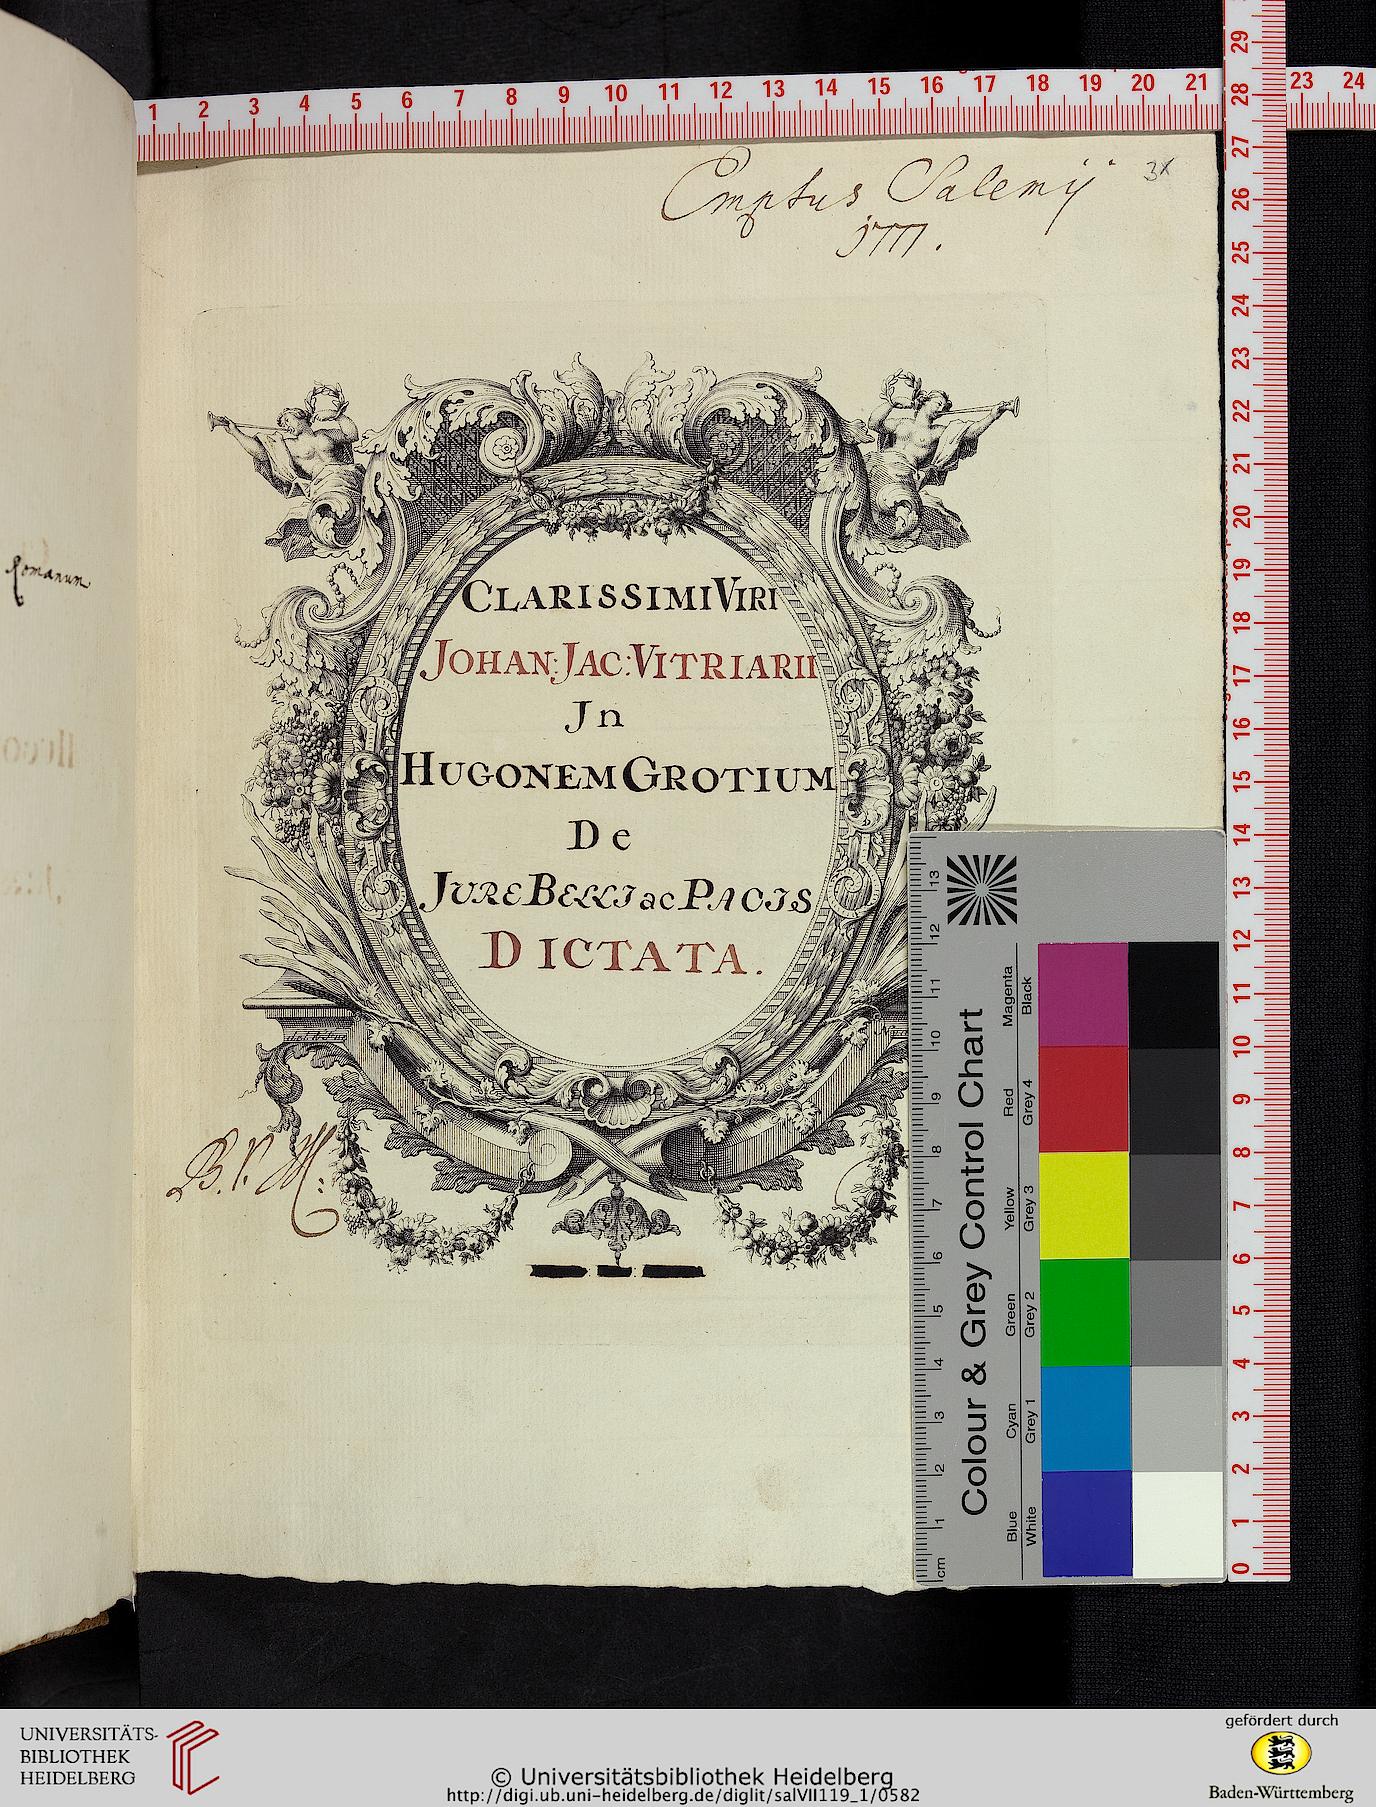 Emptus Salemij
1777.
3x
Romanum
CLARISSIMI VIRI
JOHAN: JAC: VITRIARII
Jn
HUGONEM GROTIUM
De
JURE BELLI ac PACIS
DICTATA.
B. V. M:
1 2 3 4 5 6 7 8 9 10 11 12 13 14 15 16 17 18 19 20 21 23 24
29 28 27 26 25 24 23 22 21 20 19 18 17 16 15 14 13 12 11 10 9 8 7 6 5 4 3 2 1 0
Colour & Grey Control Chart
cm 1 2 3 4 5 6 7 8 9 10 11 12 13
Blue Cyan Green Yellow Red Magenta
White Grey 1 Grey 2 Grey 3 Grey 4 Black
UNIVERSITÄTS-
BIBLIOTHEK
HEIDELBERG
© Universitätsbibliothek Heidelberg
http://digi.ub.uni-heidelberg.de/diglit/salVII119_1/0582
gefördert durch
Baden-Württemberg